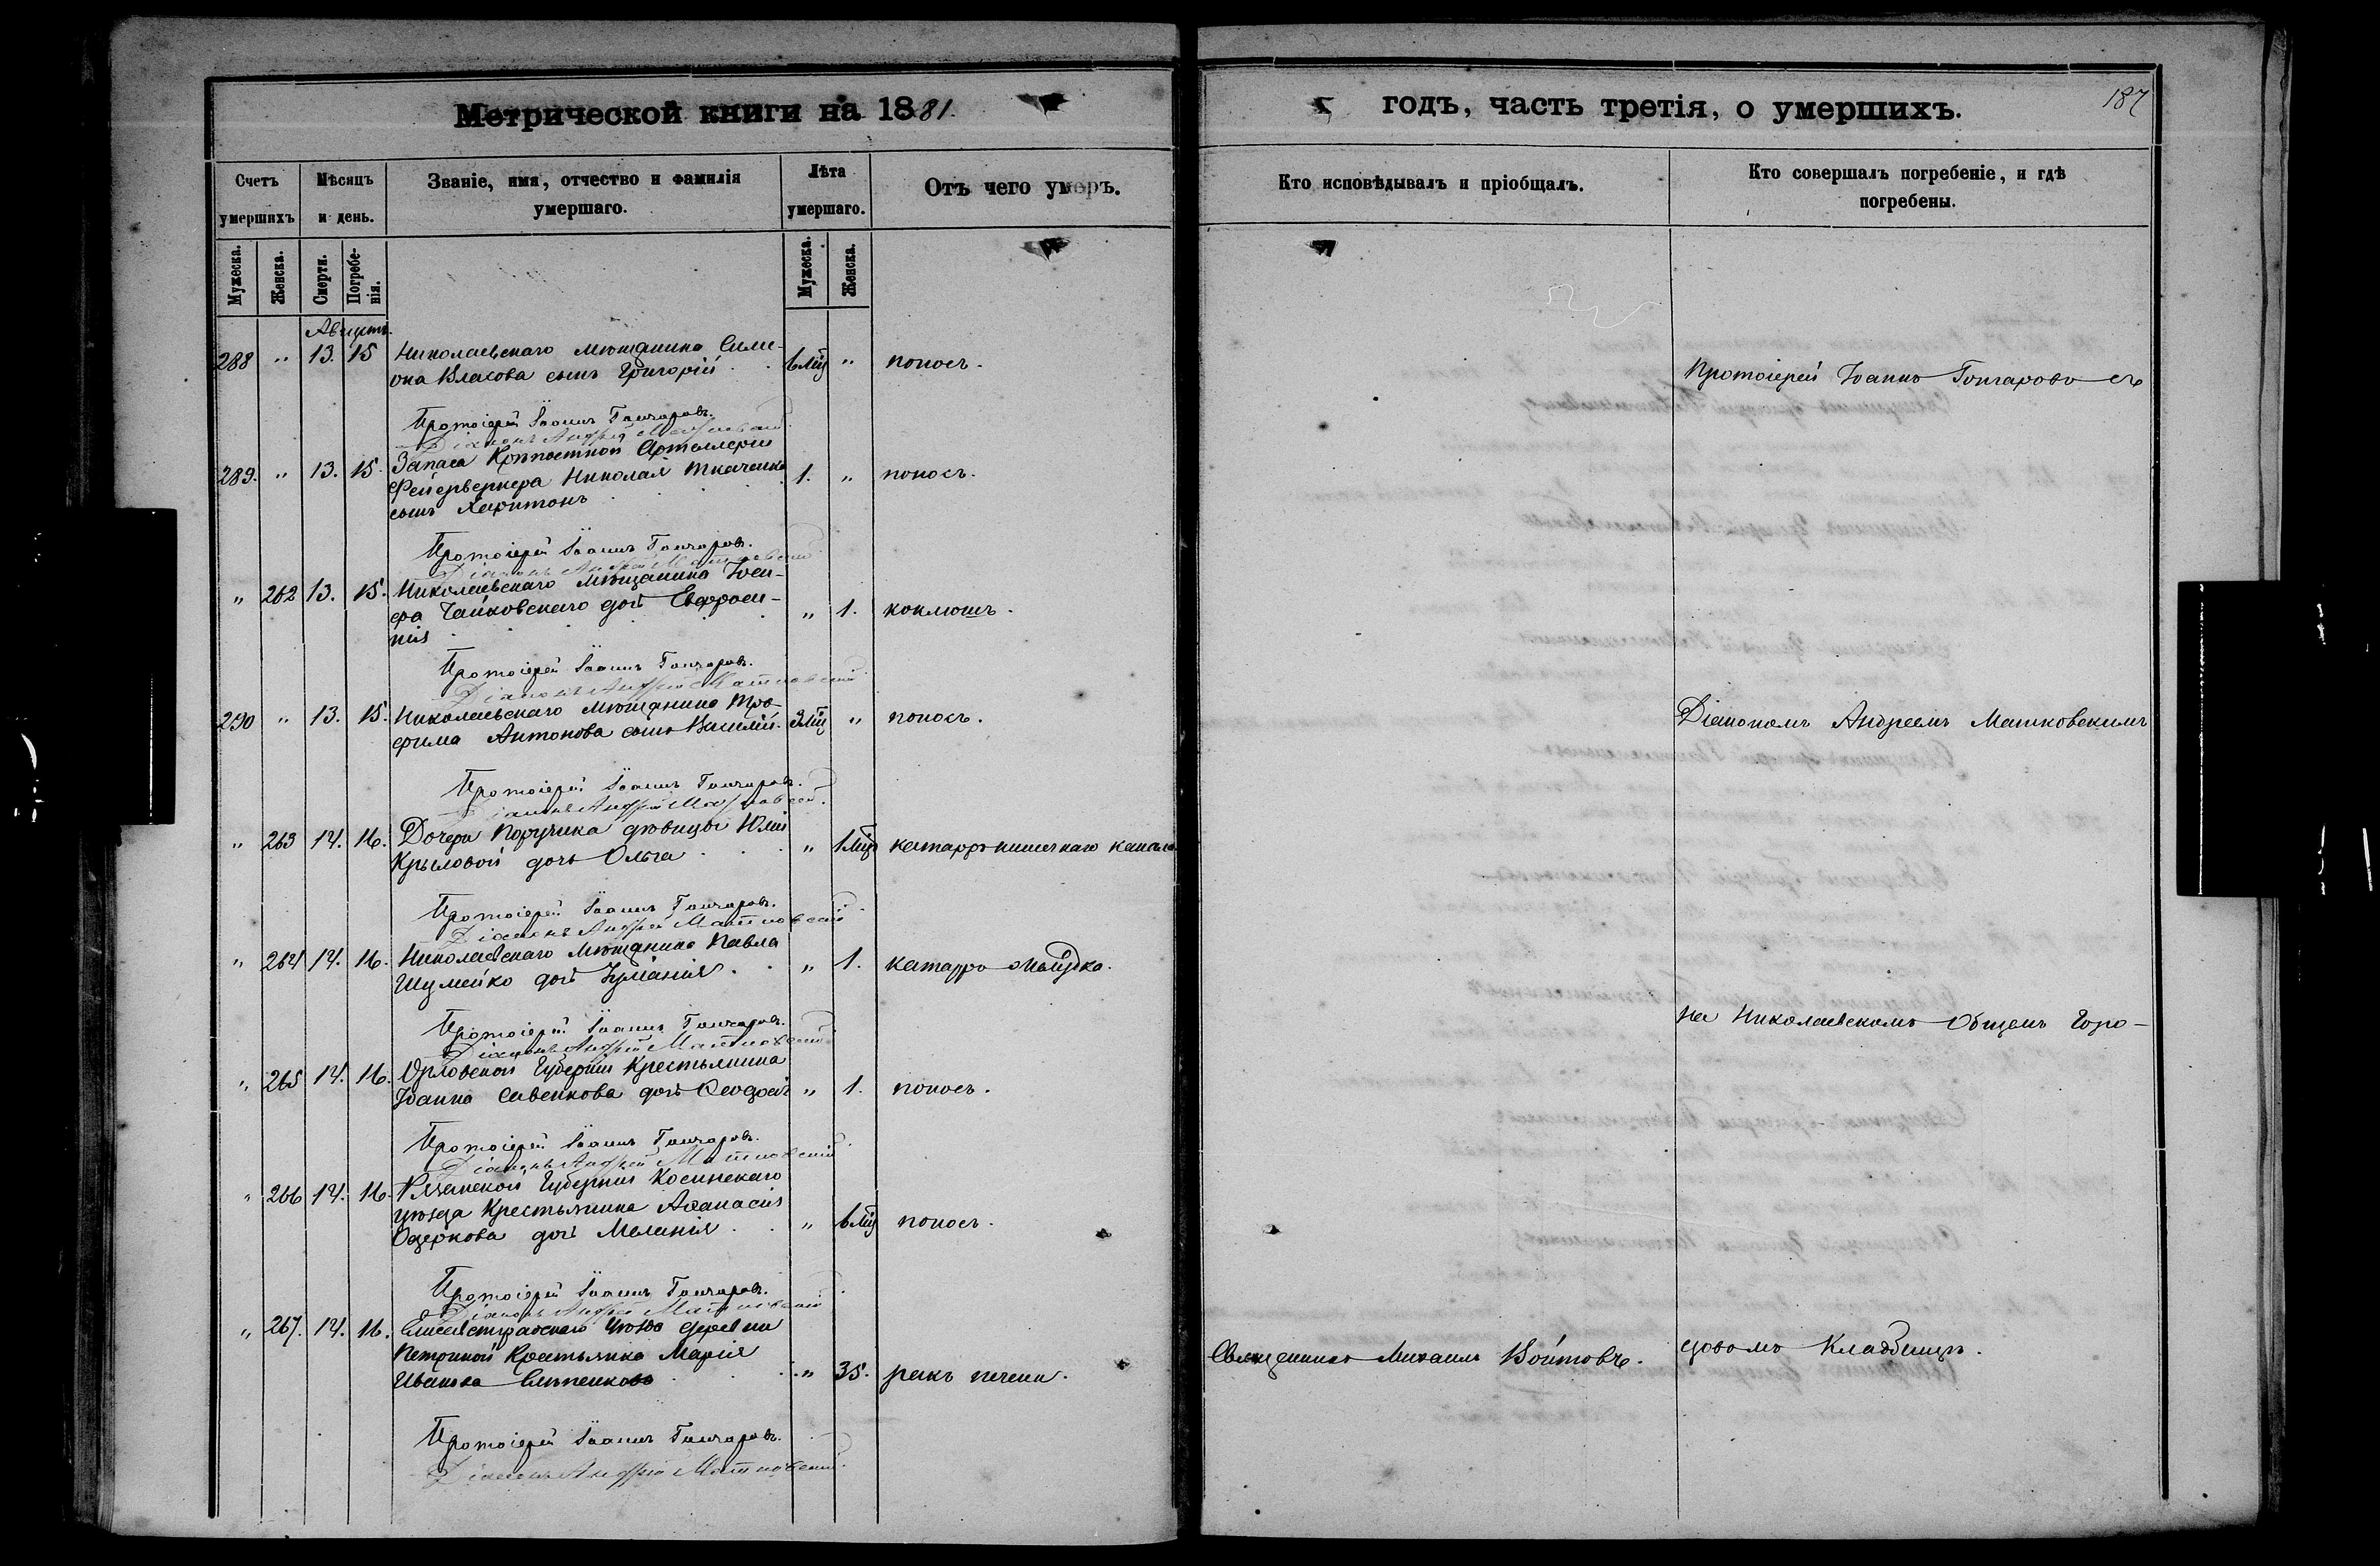 Метрической книги на 1881.
годъ, часть третія, о умершихъ.
187
Счетъ умершихъ
Мѣсяцъ и день.
Званіе, имя, отчество и фамилія умершаго.
Лѣта умершаго.
Отъ чего умеръ.
Кто исповѣдывалъ и пріобщалъ.
Кто совершалъ погребеніе, и гдѣ погребены.
Мужеска.
Женска.
Смерти.
Погребенія.
Мужеска.
Женска.
Августъ.
288 " 13. 15 Николаевскаго мѣщанина Симе-
она Власова сынъ Григорій 6 мц " поносъ.
Протоіерей Іоаннъ Гончаровъ.
Діаконъ Андрей Машковскій
289. " 13. 15. Запаса Крѣпостной Артиллеріи
Фейерверкера Николая Ткаченка 1. " поносъ.
сынъ Харитонъ
Протоіерей Іоаннъ Гончаровъ.
Діаконъ Андрей Машковскій
" 262 13. 15. Николаевскаго мѣщанина Іоси-
фа Чайковскаго дочь Евфроси- " 1. коклюшъ.
нія
Протоіерей Іоаннъ Гончаровъ.
Діаконъ Андрей Машковскій
290 " 13. 15. Николаевскаго мѣщанина Тро-
фима Антонова сынъ Василій. 3 мц " поносъ.
Протоіерей Іоаннъ Гончаровъ.
Діаконъ Андрей Машковскій
" 263 14. 16. Дочери Поручика дѣвицы Юліи
Крыловой дочь Ольга " 1 мц катарръ кишечнаго канала
Протоіерей Іоаннъ Гончаровъ.
Діаконъ Андрей Машковскій
" 264 14. 16. Николаевскаго мѣщанина Павла
Шумейко дочь Іуліанія " 1. катарръ желудка.
Протоіерей Іоаннъ Гончаровъ.
Діаконъ Андрей Машковскій
" 265 14. 16. Орловской Губерніи Крестьянина
Іоанна Савенкова дочь Ѳеодосія " 1. поносъ.
Протоіерей Іоаннъ Гончаровъ.
Діаконъ Андрей Машковскій
" 266 14. 16. Рязанской Губерніи
уѣзда Крестьянина Аѳанасія
дочь Меланія " 6 мц поносъ.
Протоіерей Іоаннъ Гончаровъ.
Діаконъ Андрей Машковскій
" 267. 14. 16. Елисаветградскаго уѣзда деревни
Крестьянка Марія
Иванова " 35. ракъ печени.
Протоіерей Іоаннъ Гончаровъ.
Діаконъ Андрей Машковскій
Священникъ Михаилъ Войтовъ.
Протоіерей Іоаннъ Гончаровъ съ
Діакономъ Андреемъ Машковскимъ
на Николаевскомъ Общемъ Горо-
довомъ Кладбищѣ.